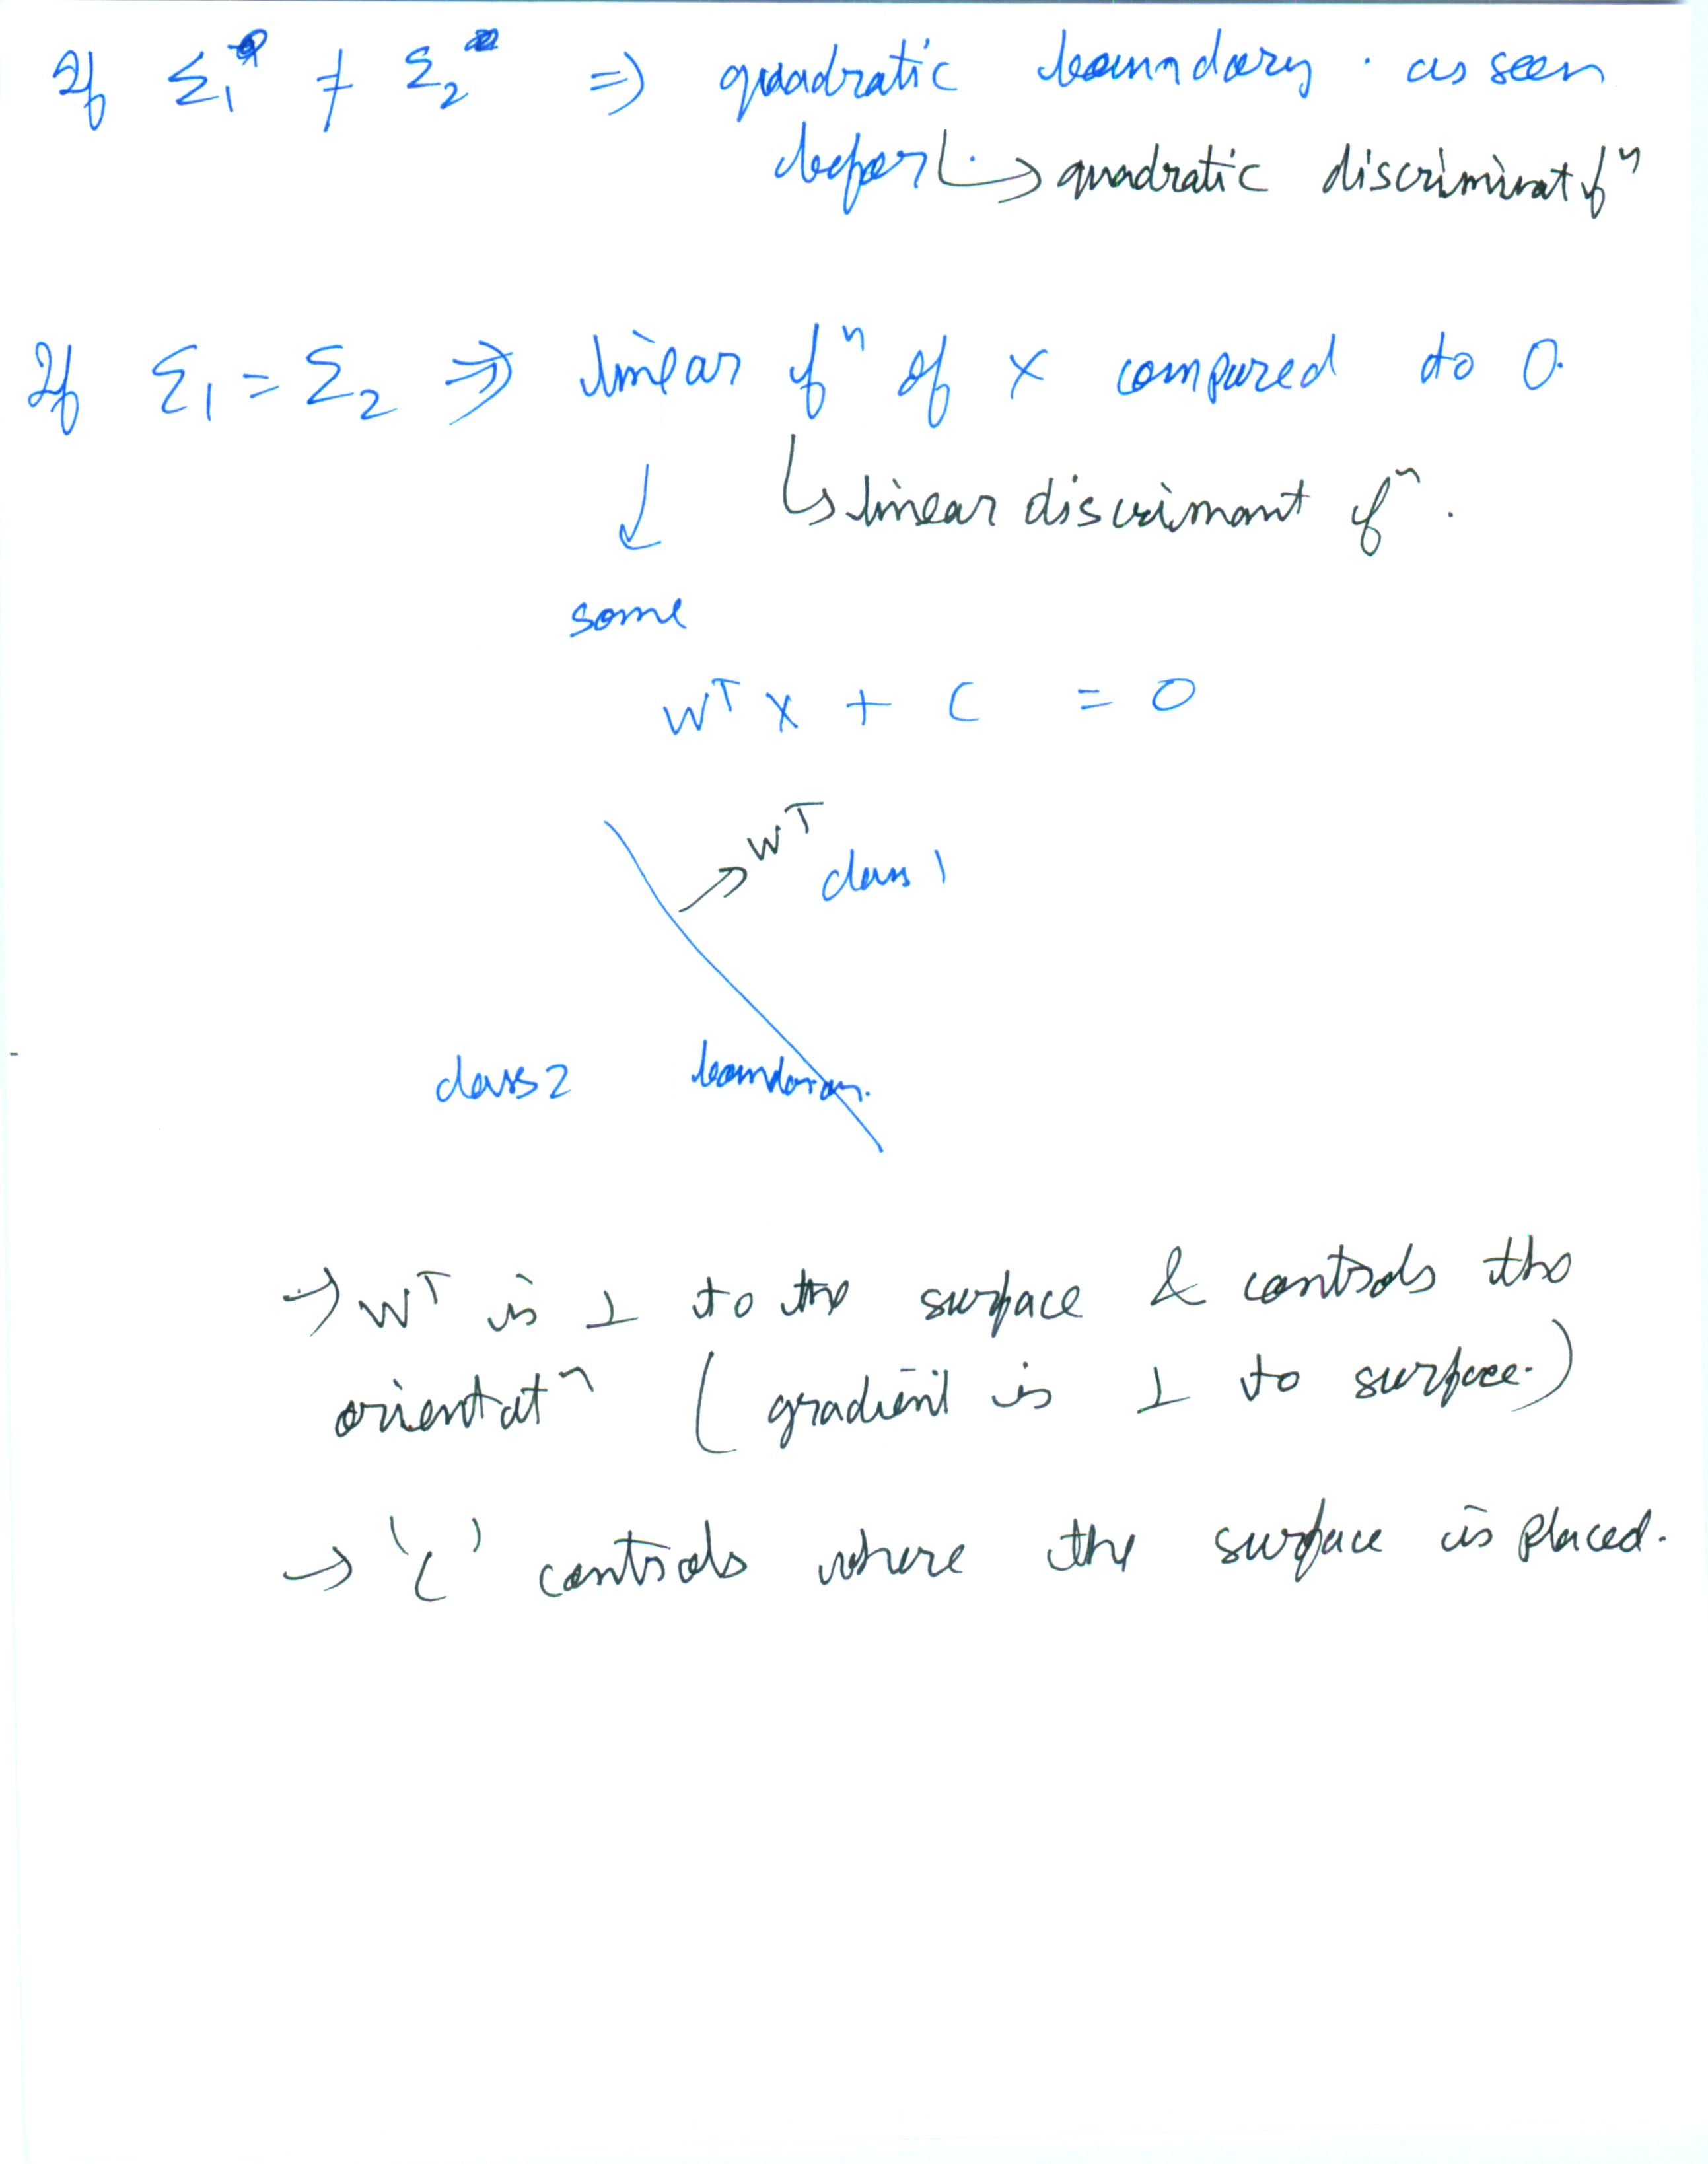 If Σ₁ ≠ Σ₂ ⇒ quadratic boundary. as seen
before. → quadratic discriminat fⁿ
If Σ₁ = Σ₂ ⇒ linear fⁿ of x compared to 0.
↓ ↳ linear discrimant fⁿ.
some
Wᵀ x + C = 0
Wᵀ
class 1
class 2 boundary.
→ Wᵀ is ⊥ to the surface & controls the
orientatⁿ (gradient is ⊥ to surface.)
→ 'C' controls where the surface is placed.